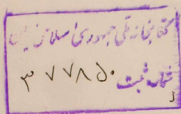 کتابخانه ملی جمهوری اسلامی ایران
شماره ثبت ۳۷۷۸۵۰